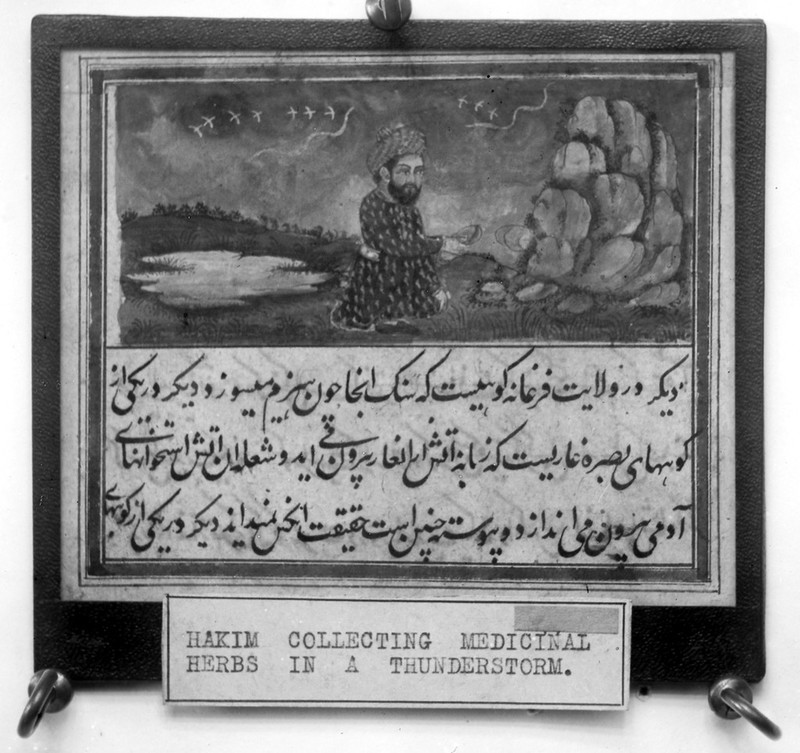 دیکر در ولایت فرغانه کوهیست که سنک انجا چون هیزم میسوزد و دیکر در یکی از
کوههای بصره غاریست که زبانه اتش از انغار بیرون می اید و شعله ان اتش استخوانهای
آدمی بیرون می اندازد و پیوسته چنین است حقیقت انکس نمیداند دیکر در یکی از کوههای
HAKIM COLLECTING MEDICINAL
HERBS IN A THUNDERSTORM.